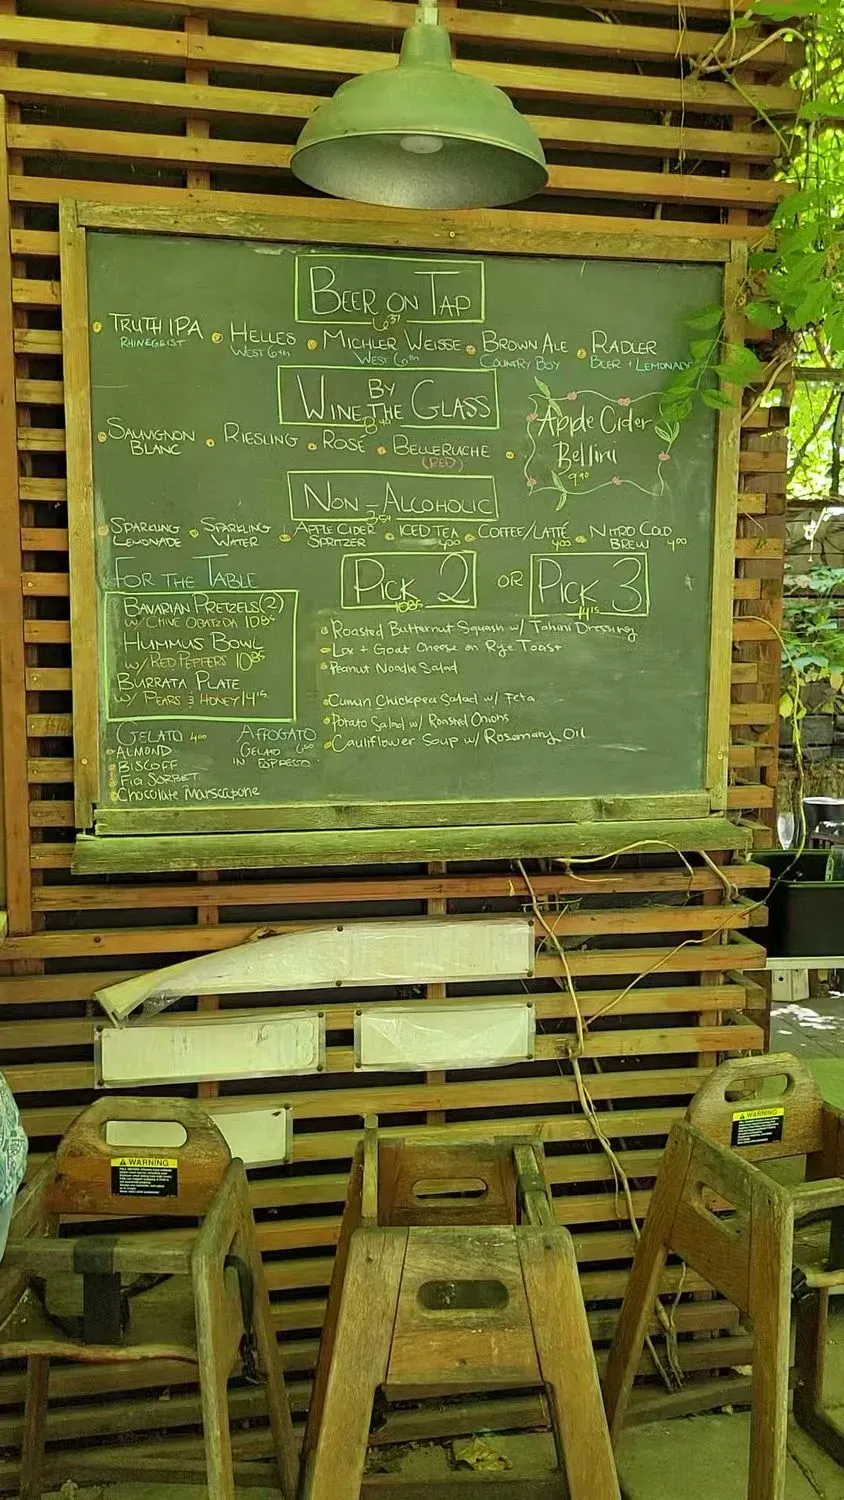 BEER ON TAP
6.37
TRUTH IPA
RHINEGEIST
HELLES
WEST 6TH
MICHLER WEISSE
WEST 6TH
BROWN ALE
COUNTRY BOY
RADLER
BEER + LEMONADE
BY
WINE THE GLASS
8.49
SAUVIGNON
BLANC
RIESLING
ROSE
BELLERUCHE
(RED)
Apple Cider
Bellini
9.90
NON-ALCOHOLIC
SPARKLING
LEMONADE
SPARKLING
WATER
APPLE CIDER
SPRITZER
ICED TEA
4.00
COFFEE/LATTE
4.00
NITRO COLD
BREW 4.00
FOR THE TABLE
BAVARIAN PRETZELS (2)
W/ CHIVE OBATZDA 10.85
HUMMUS BOWL
W/ RED PEPPERS 10.85
BURRATA PLATE
W/ PEARS & HONEY 14.15
PICK 2
10.85
OR
PICK 3
14.15
Roasted Butternut Squash w/ Tahini Dressing
Lox + Goat Cheese on Rye Toast
Peanut Noodle Salad
Cumin Chickpea Salad w/ Feta
Potato Salad w/ Roasted Onions
Cauliflower Soup w/ Rosemary Oil
GELATO 4.00
ALMOND
BISCOFF
FIG SORBET
Chocolate Marscapone
AFFOGATO
GELATO 6.00
IN ESPRESSO
WARNING
WARNING